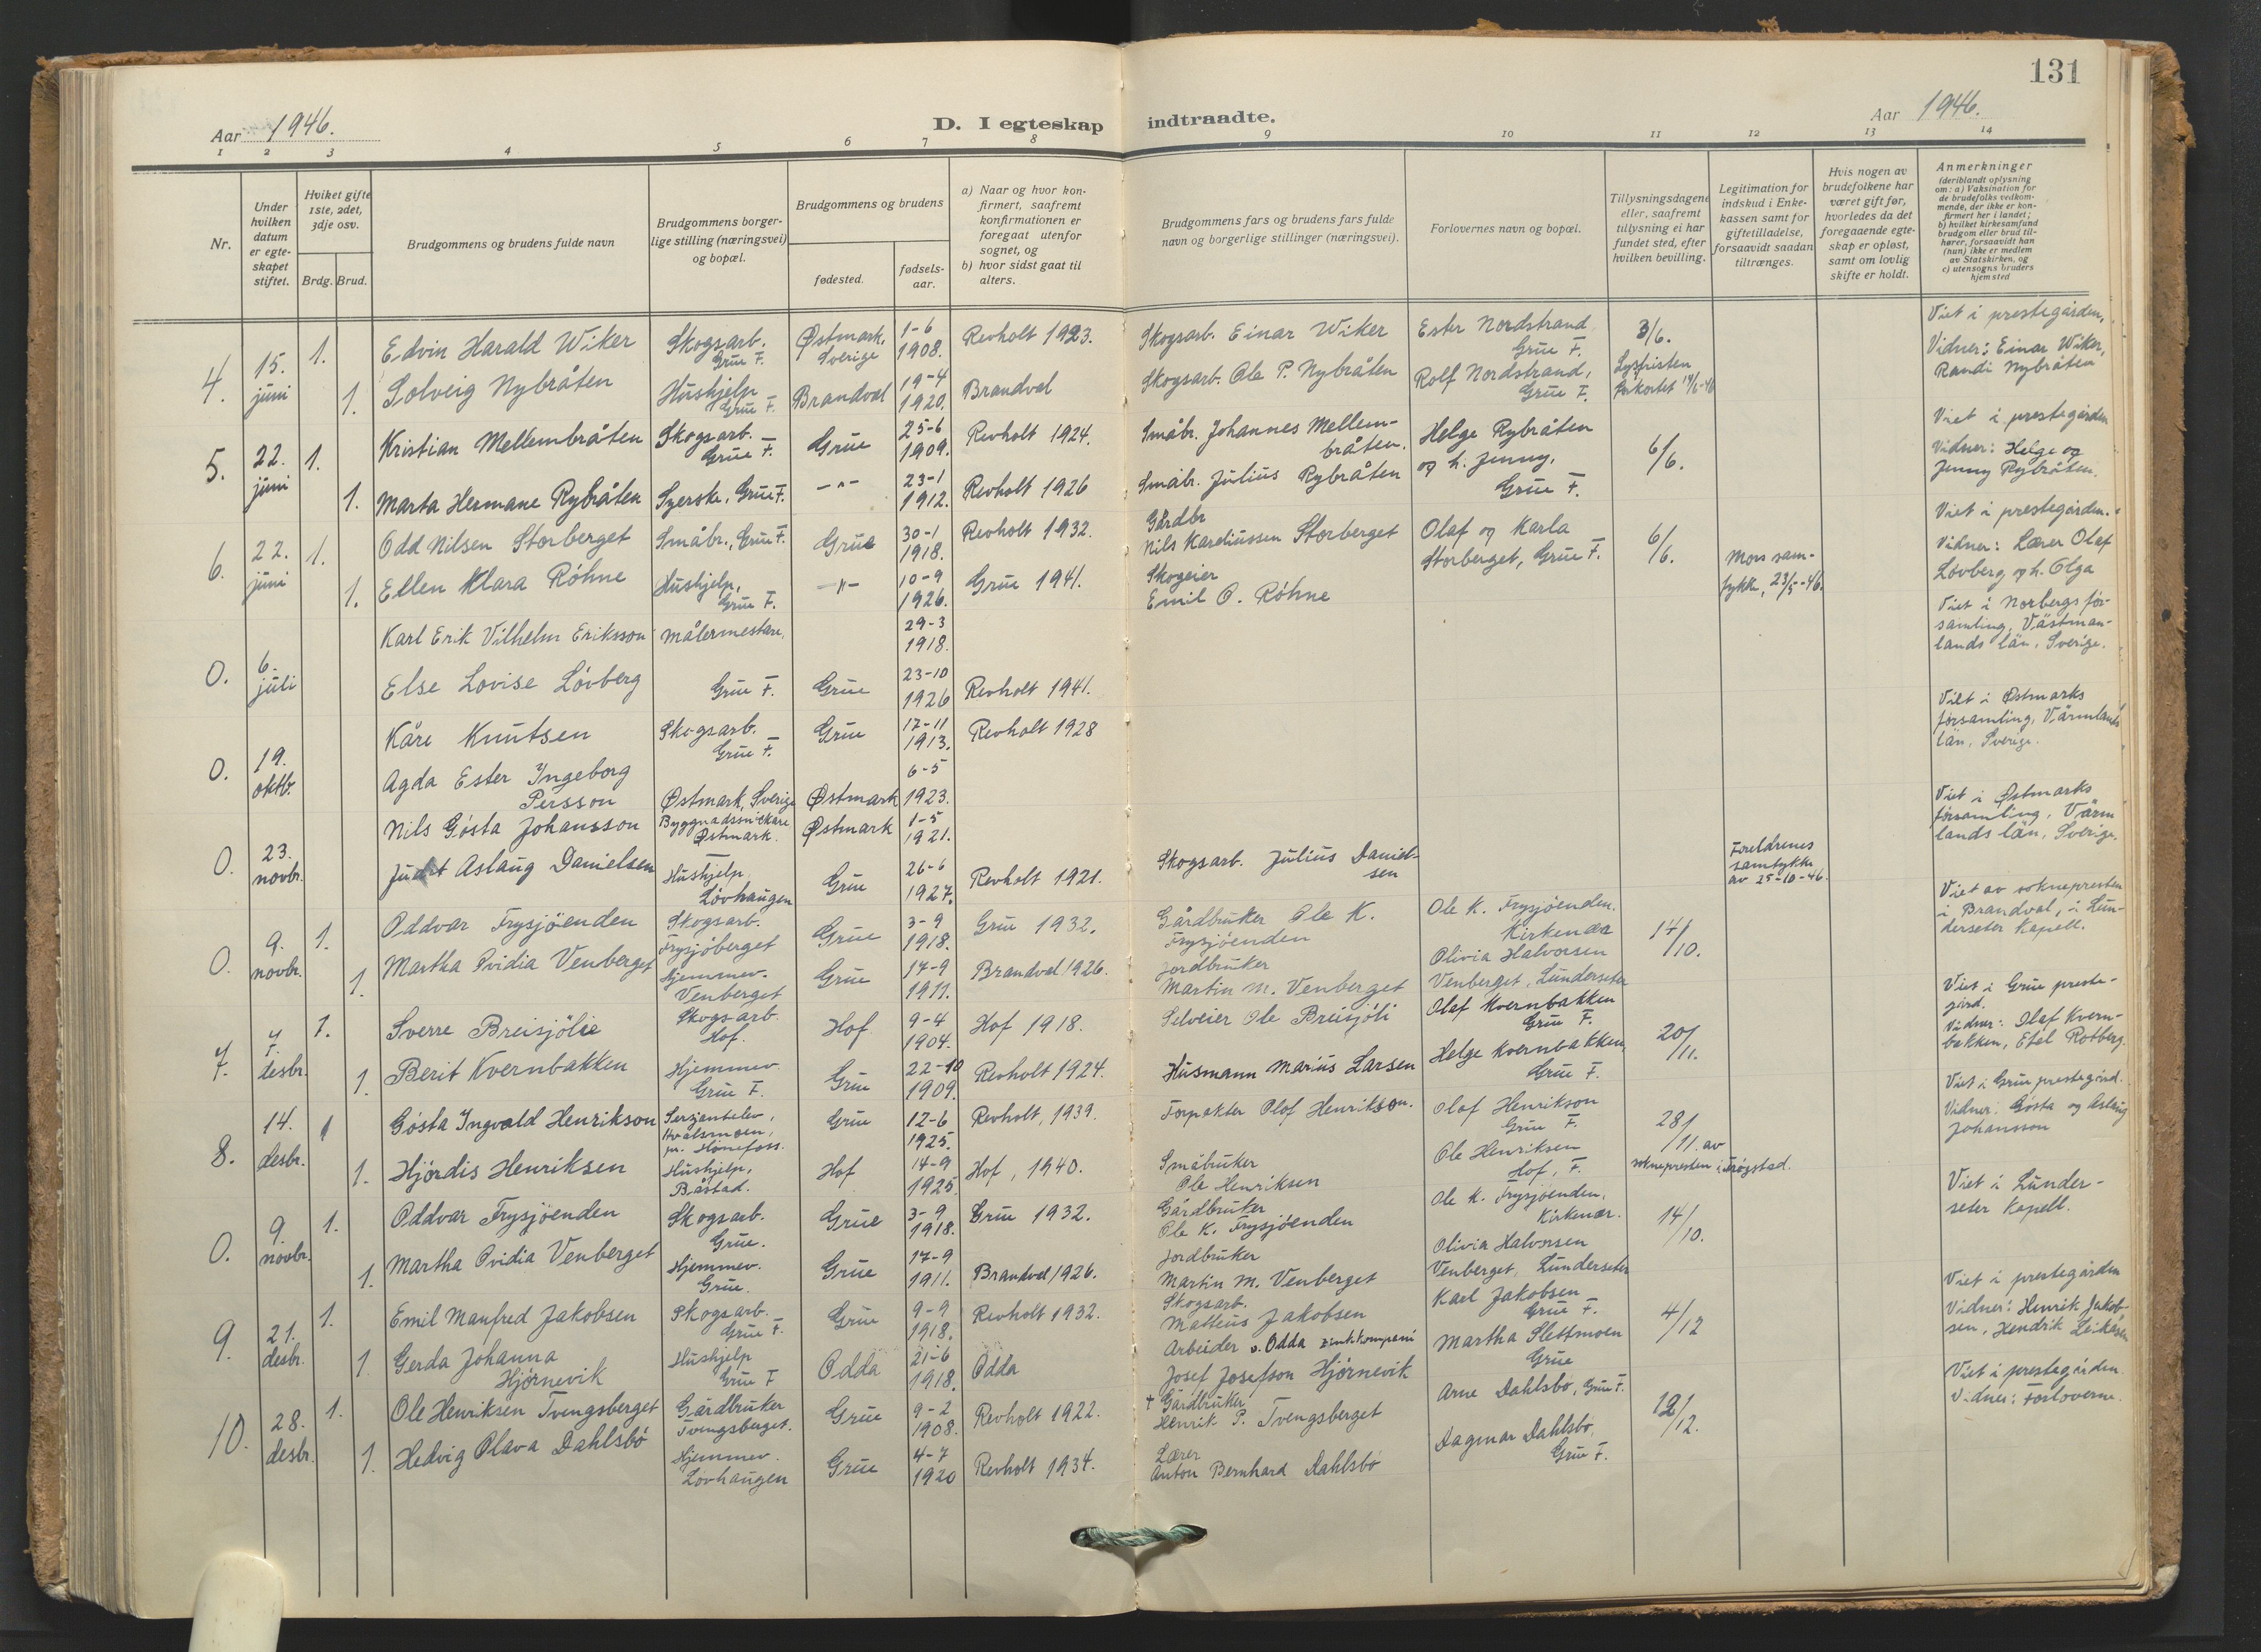 131
Aar 1946.
D. I egteskap indtraadte.
Aar 1946.
1 2 3 4 5 6 7 8 9 10 11 12 13 14
Nr.
Under hvilken datum er egteskapet stiftet.
Hviket gifte 1ste, 2det, 3dje osv.
Brdg. Brud.
Brudgommens og brudens fulde navn
Brudgommens borgerlige stilling (næringsvei) og bopæl.
Brudgommens og brudens
fødested.
fødselsaar.
a) Naar og hvor konfirmert, saafremt konfirmationen er foregaat utenfor sognet, og
b) hvor sidst gaat til alters.
Brudgommens fars og brudens fars fulde navn og borgerlige stillinger (næringsvei).
Forlovernes navn og bopæl.
Tillysningsdagene eller, saafremt tillysning ei har fundet sted, efter hvilken bevilling.
Legitimation for indskud i Enkekassen samt for giftetilladelse, forsaavidt saadan tiltrænges.
Hvis nogen av brudefolkene har været gift før, hvorledes da det foregaaende egteskap er opløst, samt om lovlig skifte er holdt.
Anmerkninger
(deriblandt oplysning om: a) Vaksination for de brudefolks vedkommende, der ikke er konfirmert her i landet; b) hvilket kirkesamfund brudgom eller brud tilhører, forsaavidt han (hun) ikke er medlem av Statskirken, og c) utensogns bruders hjemsted
4. 15. juni 1. Edvin Harald Wiker Skogsarb. Grue F. Østmark, Sverige 1-6 1908. Revholt 1923. Skogsarb. Einar Wiker Ester Nordstrand Grue F. 3/6. Viet i prestegården,
1. Solveig Nybråten Hushjelp Grue F. Brandval 19-4 1920. Brandval Skogsarb. Ole P. Nybråten Rolf Nordstrand, Grue F. Lysfristen forkortet 14/6-46 Vidner: Einar Wiker, Randi Nybråten
5. 22. juni 1. Kristian Mellembråten Skogsarb. Grue F. Grue 25-6 1909. Revholt 1924. Småbr. Johannes Mellembråten. Helge Rybråten 6/6. Viet i prestegården
1. Marta Hermane Rybråten Syerske, Grue F. -"- 23-1 1912. Revholt 1926 Småbr. Julius Rybråten og h. Jenny, Grue F. Vidner: Helge og Jenny Rybråten.
6. 22. juni 1. Odd Nilsen Storberget Småbr., Grue F. Grue 30-1 1918. Revholt 1932. Gårdbr Nils Kareliussen Storberget Olaf og Karla Storberget, Grue F. 6/6. Viet i prestegården.
1. Ellen Klara Röhne Hushjelp, Grue F. -"- 10-9 1926. Grue 1941. Skogeier Emil O. Röhne Mors samtykke, 23/5-46. Vidner: Lærer Olaf Lövberg og h. Olga
0. 6. juli Karl Erik Vilhelm Eriksson målermestare, 29-3 1918. Viet i Norbergs församling, Västmanlands län, Sverige.
Else Lovise Lövberg Grue F. Grue 23-10 1926 Revholt 1941.
0. 19. oktb. Kåre Knutsen Skogsarb. Grue F. Grue 17-11 1913. Revholt 1928 Viet i Østmarks församling, Värmlands län, Sverige.
Agda Ester Ingeborg Persson Østmark, Sverige Østmark 6-5 1923.
0. 23. novbr. Nils Gösta Johansson Byggnadssnickare Østmark. Østmark 1-5 1921. Viet i Østmarks församling, Värmlands län, Sverige.
Judit Aslaug Danielsen Hushjelp, Lövhaugen Grue 26-6 1927. Revholt 1921. Skogsarb. Julius Danielsen Foreldrenes samtykke av 25-10-46.
0. 9. novbr. 1. Oddvar Frysjöenden Skogsarb. Frysjöberget Grue 3-9 1918. Grue 1932. Gårdbruker Ole K. Frysjöenden Ole K. Frysjöenden. Kirkenær 14/10. Viet av soknepresten i Brandval, i Lunderseter Kapell.
1. Martha Ovidia Venberget Hjemmev. Venberget Grue 17-9 1911. Brandval 1926. Jordbruker Martin M. Venberget Olivia Halvorsen Venberget, Lunderseter
7. 7. desbr. 1. Sverre Breisjölie Skogsarb. Hof. Hof 9-4 1904. Hof 1918. Selveier Ole Breisjöli Olaf Kvernbakken Grue F. 20/11. Viet i Grue prestegård.
1. Berit Kvernbakken Hjemmev. Grue F. Grue 22-10 1909. Revholt 1924. Husmann Marius Larsen Helge Kvernbakken, Grue F. Vidner: Olaf Kvernbakken, Etel Rotberg.
8. 14. desbr. 1 Gösta Ingvald Henrikson Sersjantelev, Hvalsmoen, pr. Hønefoss. Grue 12-6 1925. Revholt, 1939. Forpakter Olof Henrikson. Olof Henrikson Grue F. 28/11. av soknepresten i Trøgstad. Viet i Grue prestegård.
1. Hjördis Henriksen Hushjelp, Båstad. Hof 14-9 1925. Hof, 1940. Småbruker Ole Henriksen Ole Henriksen Hof, F. Vidner: Gösta og Aslaug Johansson
0. 9. novbr. 1. Oddvar Frysjöenden Skogsarb. Grue. Grue 3-9 1918. Grue 1932. Gårdbruker Ole K. Frysjöenden Ole K. Frysjöenden, Kirkenær. 14/10. Viet i Lunderseter Kapell.
1. Martha Ovidia Venberget Hjemmev. Grue. Grue 17-9 1911. Brandval 1926. Jordbruker Martin M. Venberget Olivia Halvorsen Venberget, Lunderseter
9. 21. desbr. 1. Emil Manfred Jakobsen Skogsarb. Grue F. Grue 9-9 1918. Revholt 1932. Skogsarb. Matteus Jakobsen Karl Jakobsen Grue F. 4/12 Viet i prestegården
1. Gerda Johanna Hjørnevik Hushjelp Grue F Odda 21-6 1918. Odda Arbeider v. Odda zinkkompani Josef Josefson Hjørnevik Martha Slettmoen Grue Vidner: Henrik Jakobsen, Hendrik Leikåsen
10. 28. desbr. 1. Ole Henriksen Tvengsberget Gårdbruker Tvengsberget. Grue 9-2 1908. Revholt 1922. † Gårdbruker Henrik P. Tvengsberget Arne Dahlsbø, Grue F. 12/12. Viet i prestegården
1. Hedvig Olava Dahlsbö Hjemmev. Lövhaugen Grue 4-7 1920 Revholt 1934. Lærer Anton Bernhard Dahlsbö Dagmar Dahlsbø, Grue F. Vidner: Forloverne.